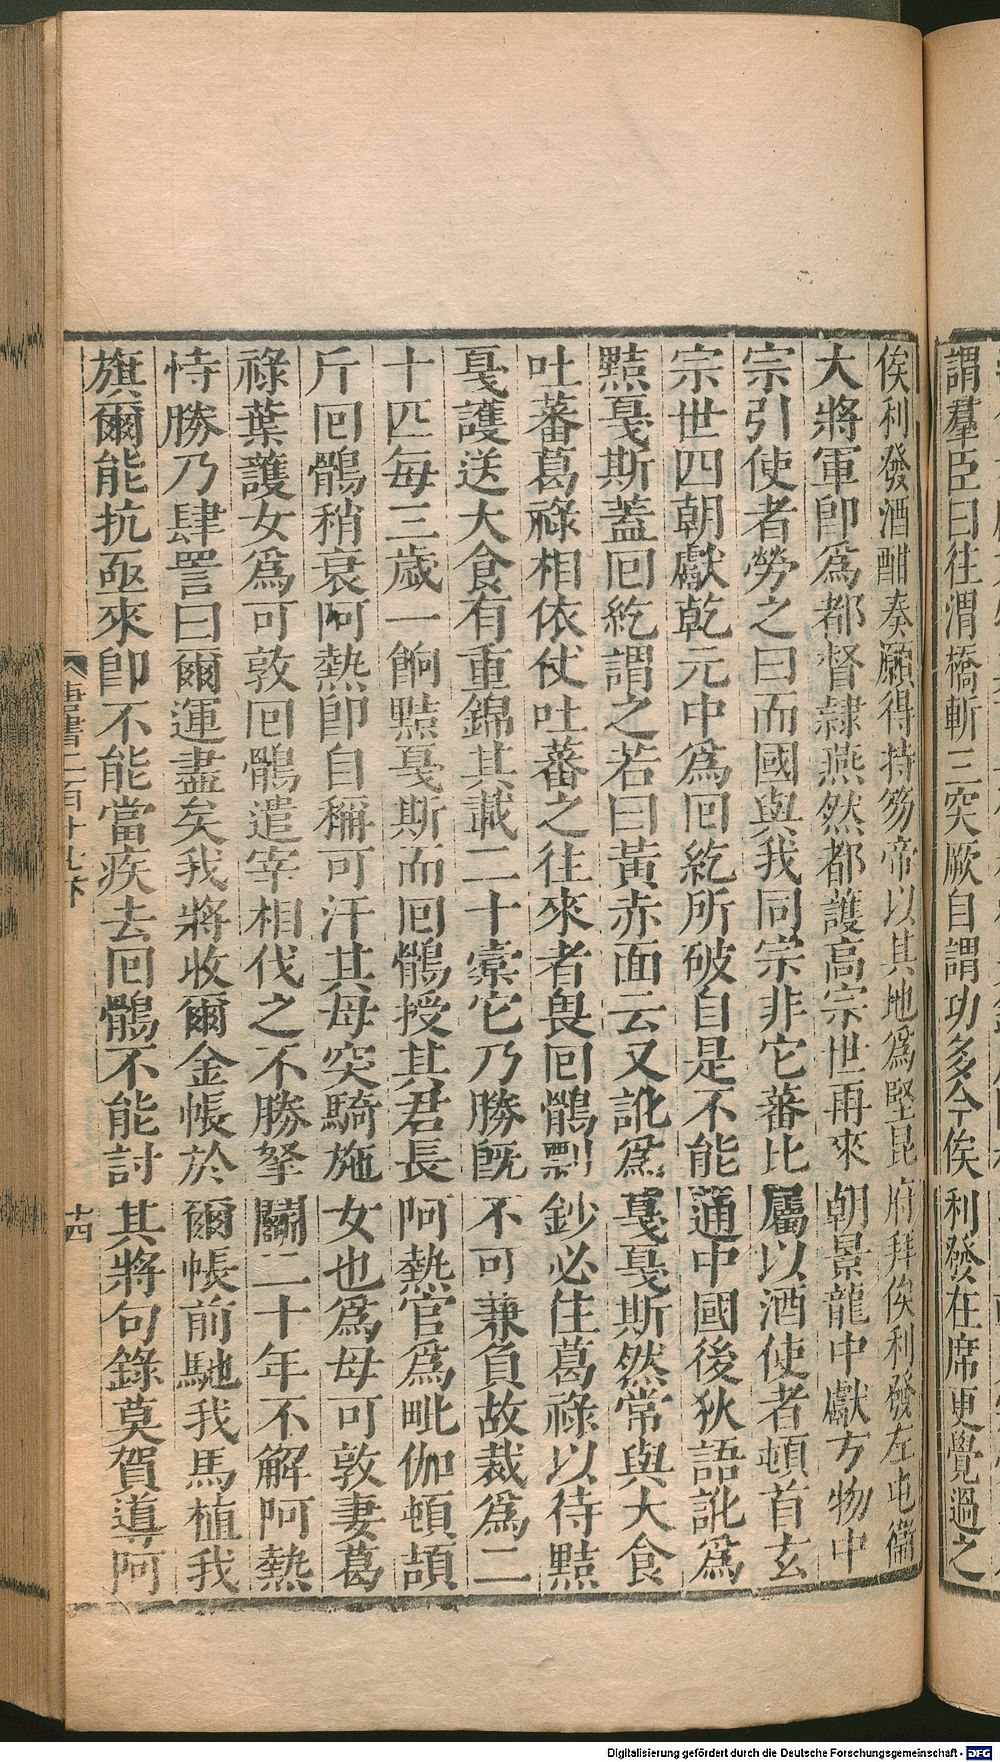 謂羣臣曰往渭橋斬三突厥自謂功多今俟利發在席更覺過之
俟利發酒酣奏願得持笏帝以其地爲堅昆府拜俟利發左屯衞
大將軍卽爲都督隷燕然都護高宗世再來朝景龍中獻方物中
宗引使者勞之曰而國與我同宗非它蕃比屬以酒使者頓首玄
宗世四朝獻乾元中爲回紇所破自是不能通中國後狄語訛爲
黠戛斯蓋回紇謂之若曰黃赤面云又訛爲戛戛斯然常與大食
吐蕃葛祿相依仗吐蕃之往來者畏回鶻剽鈔必住葛祿以待黠
戛護送大食有重錦其載二十橐它乃勝旣不可兼負故裁爲二
十匹每三歲一餉黠戛斯而回鶻授其君長阿熱官爲毗伽頓頡
斤回鶻稍衰阿熱卽自稱可汗其母突騎施女也爲母可敦妻葛
祿葉護女爲可敦回鶻遣宰相伐之不勝拏鬭二十年不解阿熱
恃勝乃肆詈曰爾運盡矣我將收爾金帳於爾帳前馳我馬植我
旗爾能抗亟來卽不能當疾去回鶻不能討其將句錄莫賀導阿
唐書二百十七下
十四
Digitalisierung gefördert durch die Deutsche Forschungsgemeinschaft - DFG